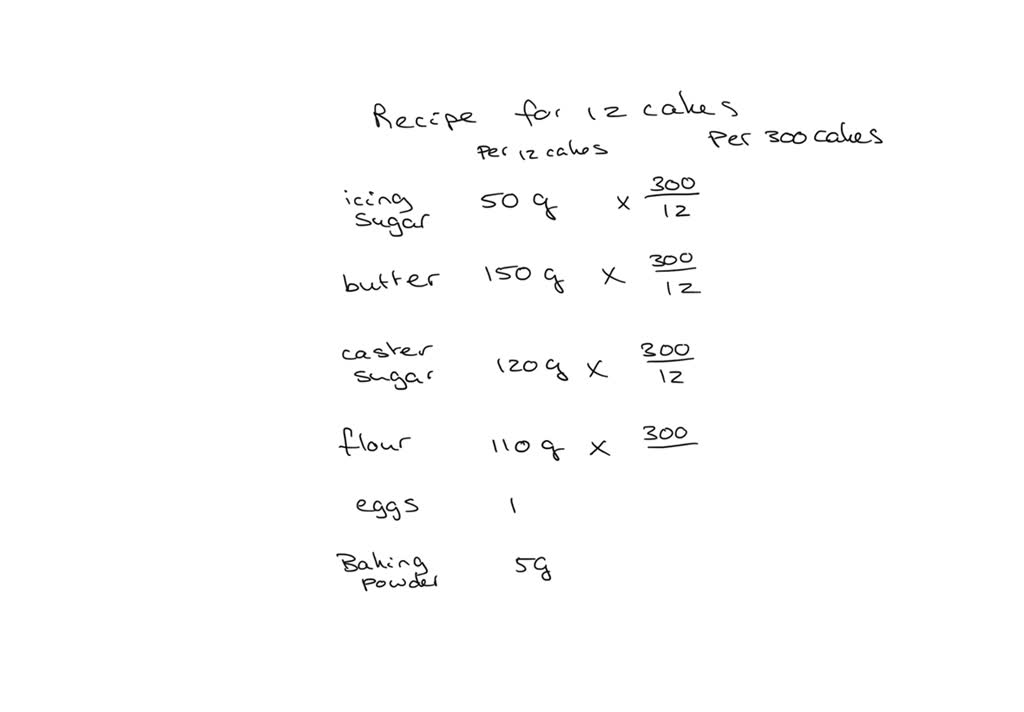 Recipe for 12 cakes
Per 12 cakes Per 300 cakes
icing
sugar 50 g x 300/12
butter 150 g x 300/12
caster
sugar 120 g x 300/12
flour 110 g x 300/
eggs 1
Baking
powder 5g